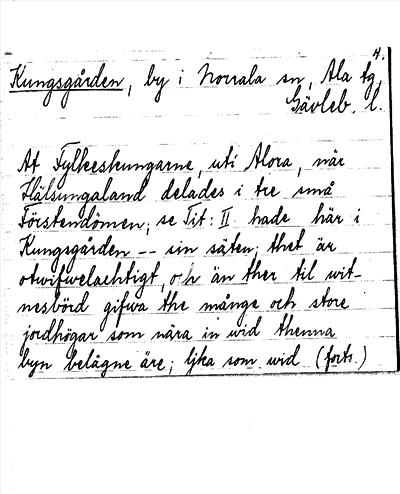 4.
Kungsgården, by i Norrala sn, Ala tg,
Gävleb. l.
At Fylkeskungarne, uti Alora, när
Hälsungaland delades i tre små
Förstendömen, se Tit: II hade här i
Kungsgården -- sin säten; thet är
otwifwelachtigt, och än ther til wit-
nesbörd gifwa the månge och store
jordhögar som nära in wid thenna
byn belägne äre; lika som wid (forts.)